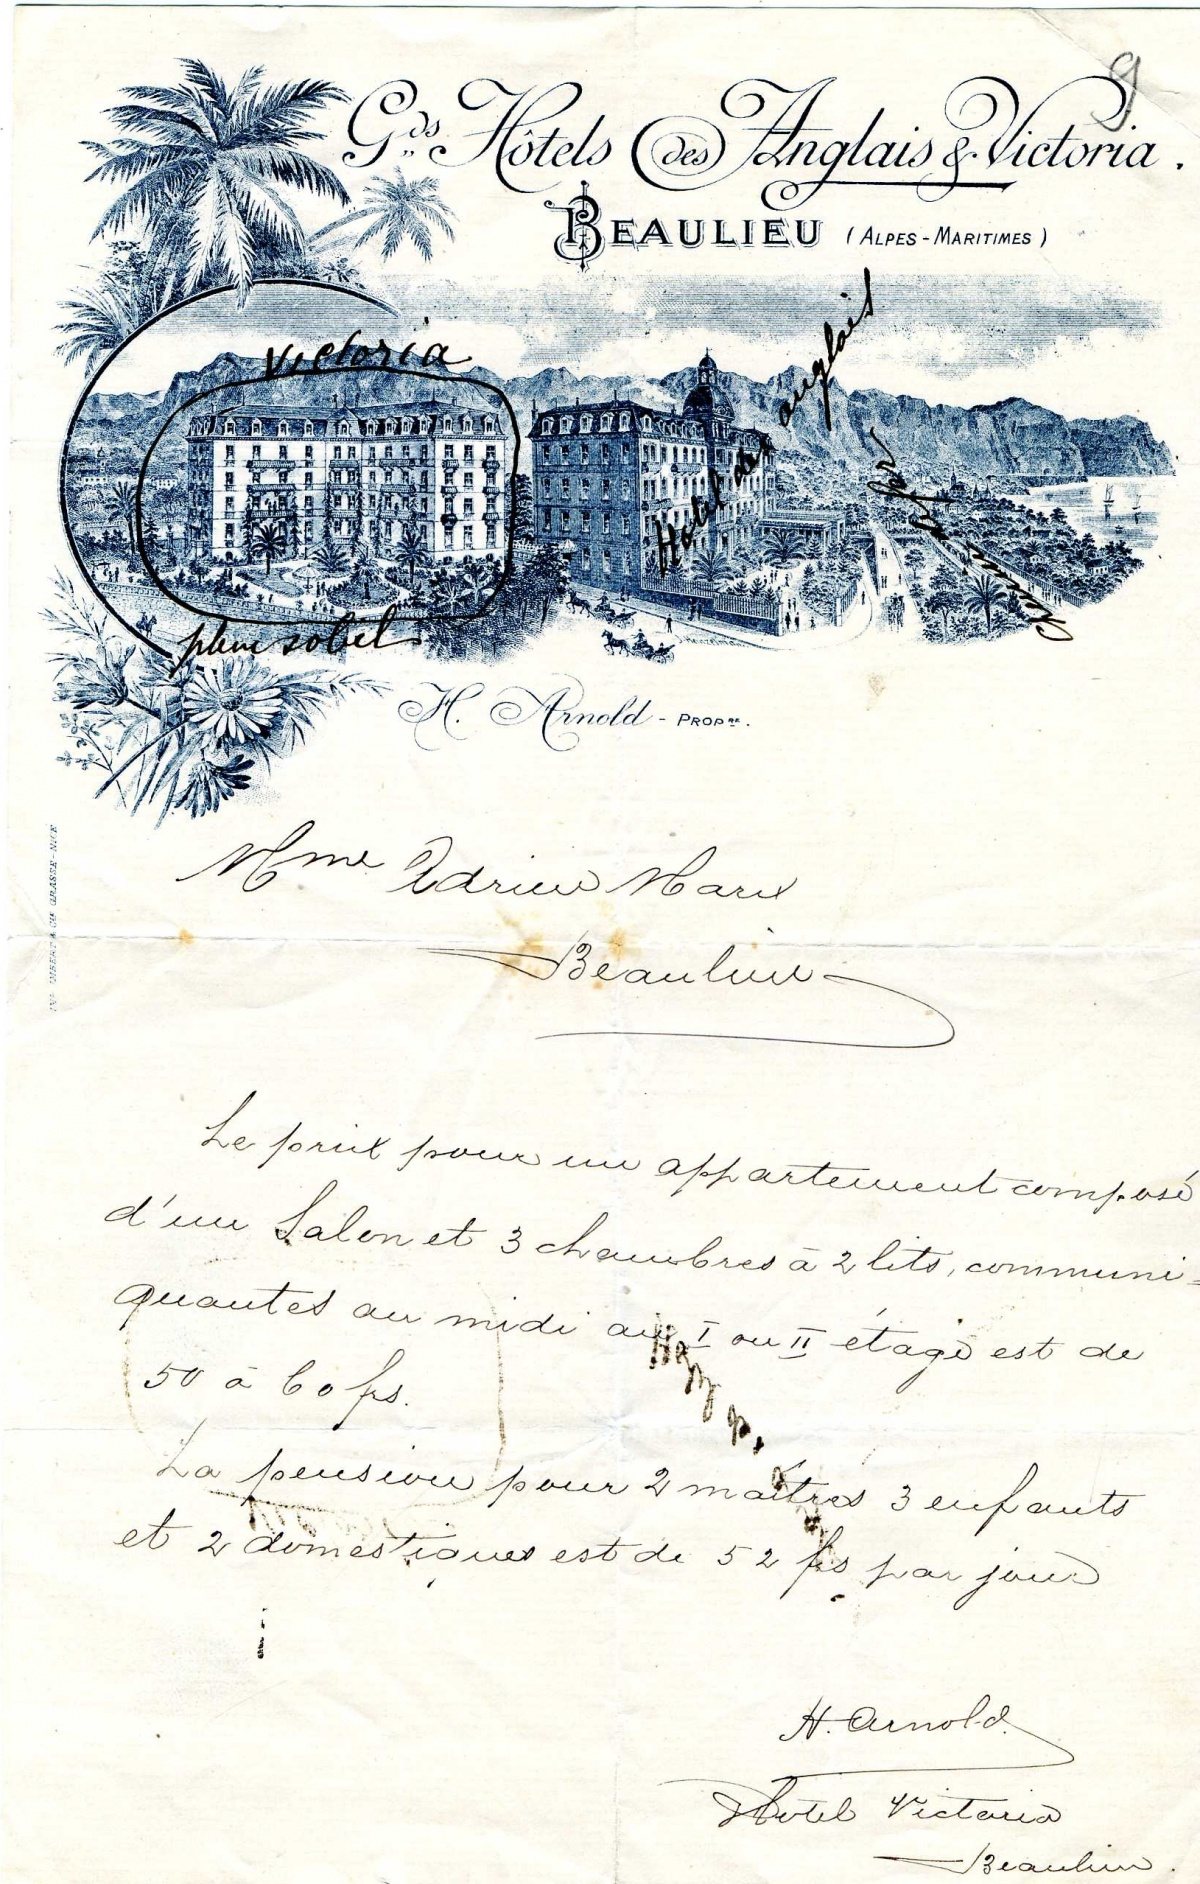 9
Gds Hôtels des Anglais & Victoria.
BEAULIEU (ALPES-MARITIMES)
Victoria
Hotel des anglais
Chemin de fer
plein soleil
H. Arnold - PROPRE.
Mme Adrien Marx
Beaulieu
Le prix pour un appartement composé
d'un Salon et 3 chambres à 2 lits, communi=
quantes au midi au I ou II étage est de
50 à 60 frs.
La pension pour 2 maîtres 3 enfants
et 2 domestiques est de 52 frs par jour
H. Arnold.
Hotel Victoria
Beaulieu.
GRASSE-NICE